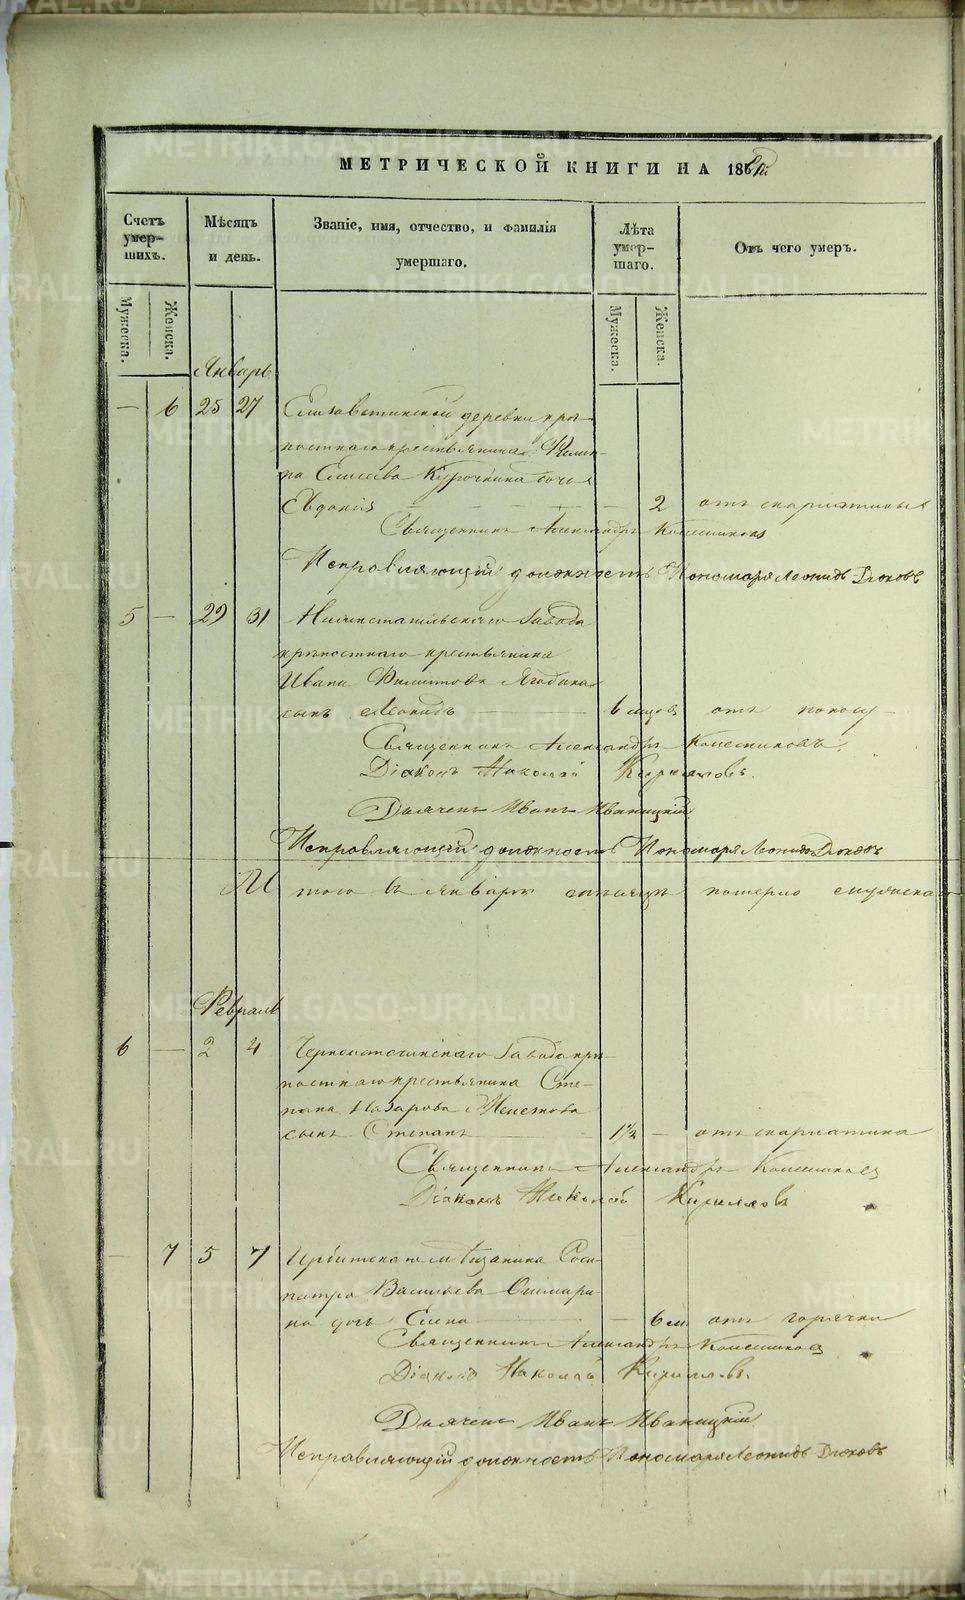 МЕТРИЧЕСКОЙ КНИГИ НА 186
Счетъ умершихъ.
Мѣсяцъ и день.
Званіе, имя, отчество, и фамилія умершаго.
Лѣта умершаго.
Отъ чего умеръ.
Мужеска.
Женска.
Мужеска.
Женска.
Январь
— 6 25 27 Елизаветинской деревни крѣ-
постнаго крестьянина Филип-
па Елисеева Курочкина дочь
Евдокія — 2 отъ скарлатины
Священникъ Александръ Колесниковъ
Исправляющій должность Пономаря Леонидъ
5 — 29 31 Нижнетагильскаго Завода
крѣпостнаго крестьянина
Ивана Филиппова
сынъ Леонидъ — 6 мцовъ отъ поносу —
Священникъ Александръ Колесниковъ.
Діаконъ Николай Кириловъ.
Дьячекъ Иванъ Иваницкій
Исправляющій должность Пономаря Леонидъ
Итого въ Январѣ мѣсяцѣ померло
Февраль
6 — 2 4 Черноисточинскаго Завода крѣ-
постнаго крестьянина Сте-
пана Назарова
сынъ Степанъ — 1½ — отъ скарлатина
Священникъ Александръ Колесниковъ
Діаконъ Николай Кириловъ
— 7 5 7 Ирбитскаго мѣщанина Соси-
патра Васильева
на дочь Елена — 6 м. отъ горячки
Священникъ Александръ Колесниковъ
Діаконъ Николай Кириловъ.
Дьячекъ Иванъ Иваницкій
Исправляющій должность Пономаря Леонидъ
METRIKI.GASO-URAL.RU